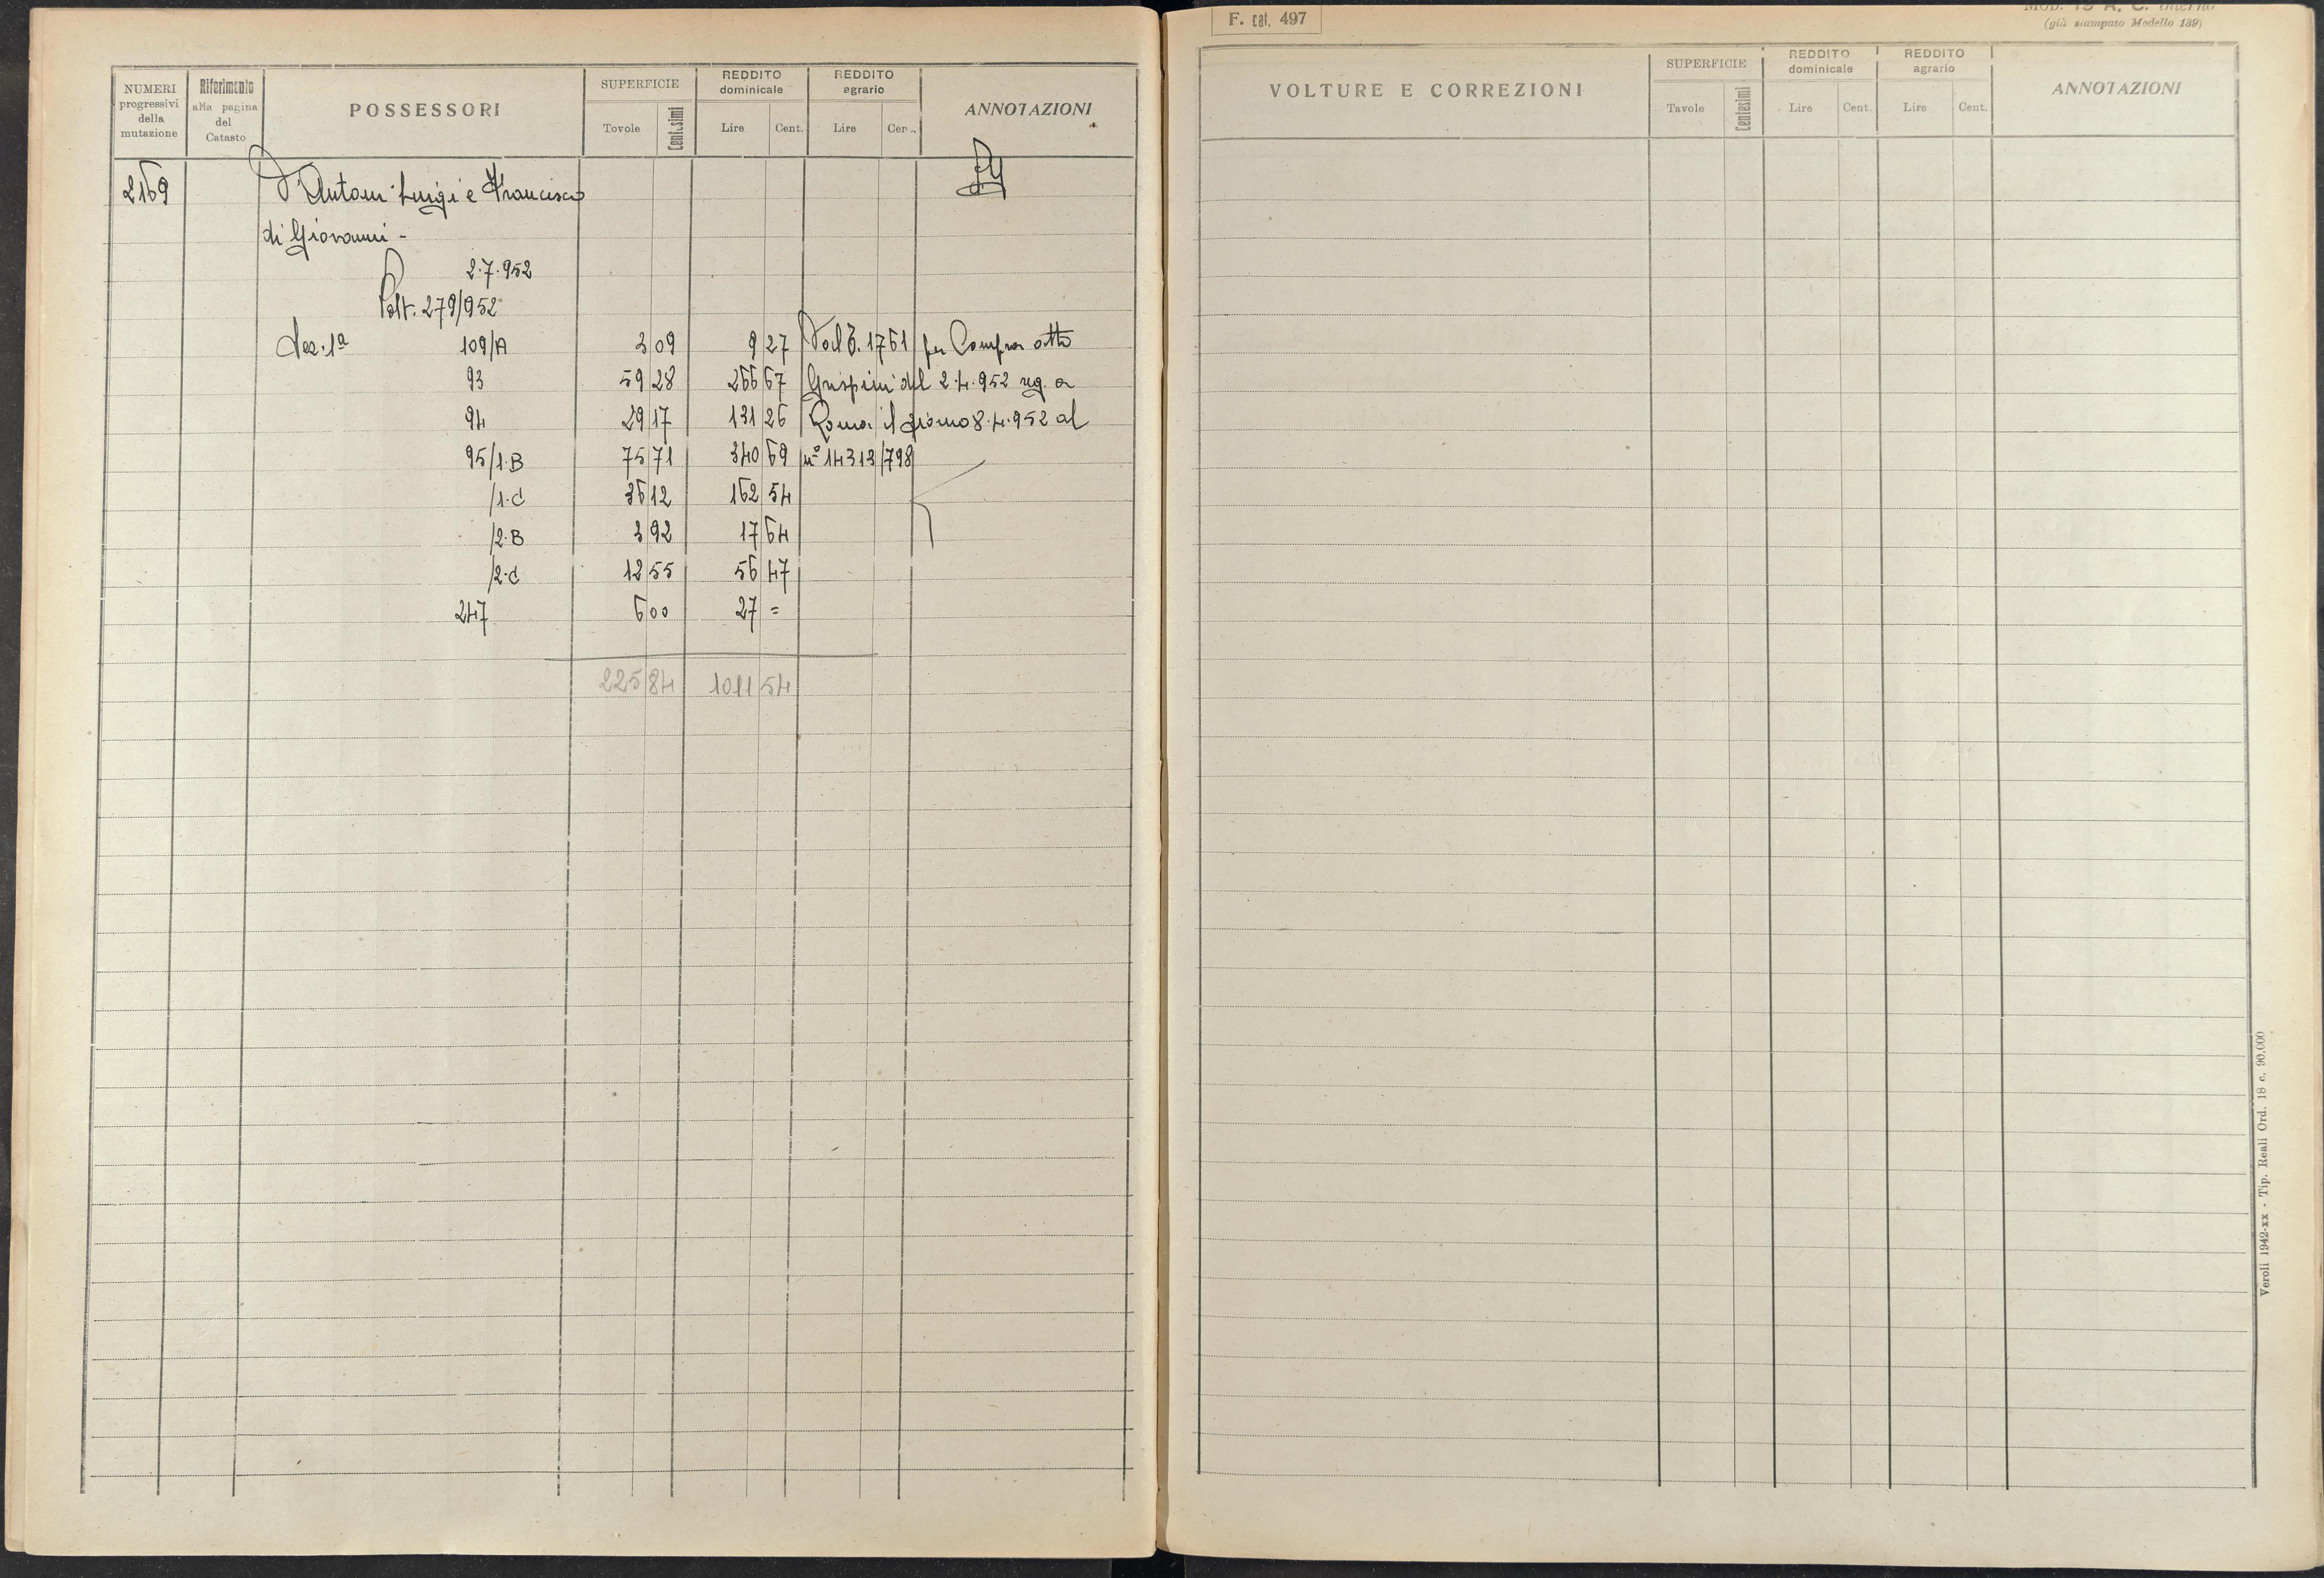 NUMERI progressivi della mutazione
Riferimento alla pagina del Catasto
POSSESSORI
SUPERFICIE
Tavole Centesimi
REDDITO dominicale
Lire Cent.
REDDITO agrario
Lire Cen..
ANNOTAZIONI
2169 D'Antoni Luigi e Francesco
di Giovanni -
2.7.952
Volt. 279/952
Sez. 1ª 109/A 3 09 9 27 Dal C. 1761 per Compra atto
93 59 28 266 67 Guspini del 2.4.952 reg. a
94 29 17 131 26 Roma il giorno 8.4.952 al
95/1.B 75 71 340 69 n° 14313/798
/1.C 36 12 162 54
/2.B 3 92 17 64
/2.C 12 55 56 47
247 6 00 27 =
225 84 1011 54
F. cat. 497
MOD. 19 A. C. interno
(già stampato Modello 139)
VOLTURE E CORREZIONI
SUPERFICIE
Tavole Centesimi
REDDITO dominicale
Lire Cent.
REDDITO agrario
Lire Cent.
ANNOTAZIONI
Veroli 1942-XX - Tip. Reali Ord. 18 c. 90.000